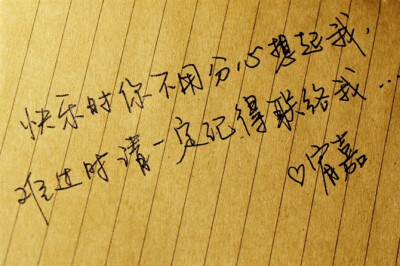 快乐时你不用分心想起我,
难过时请一定记得联络我…
♡宥嘉